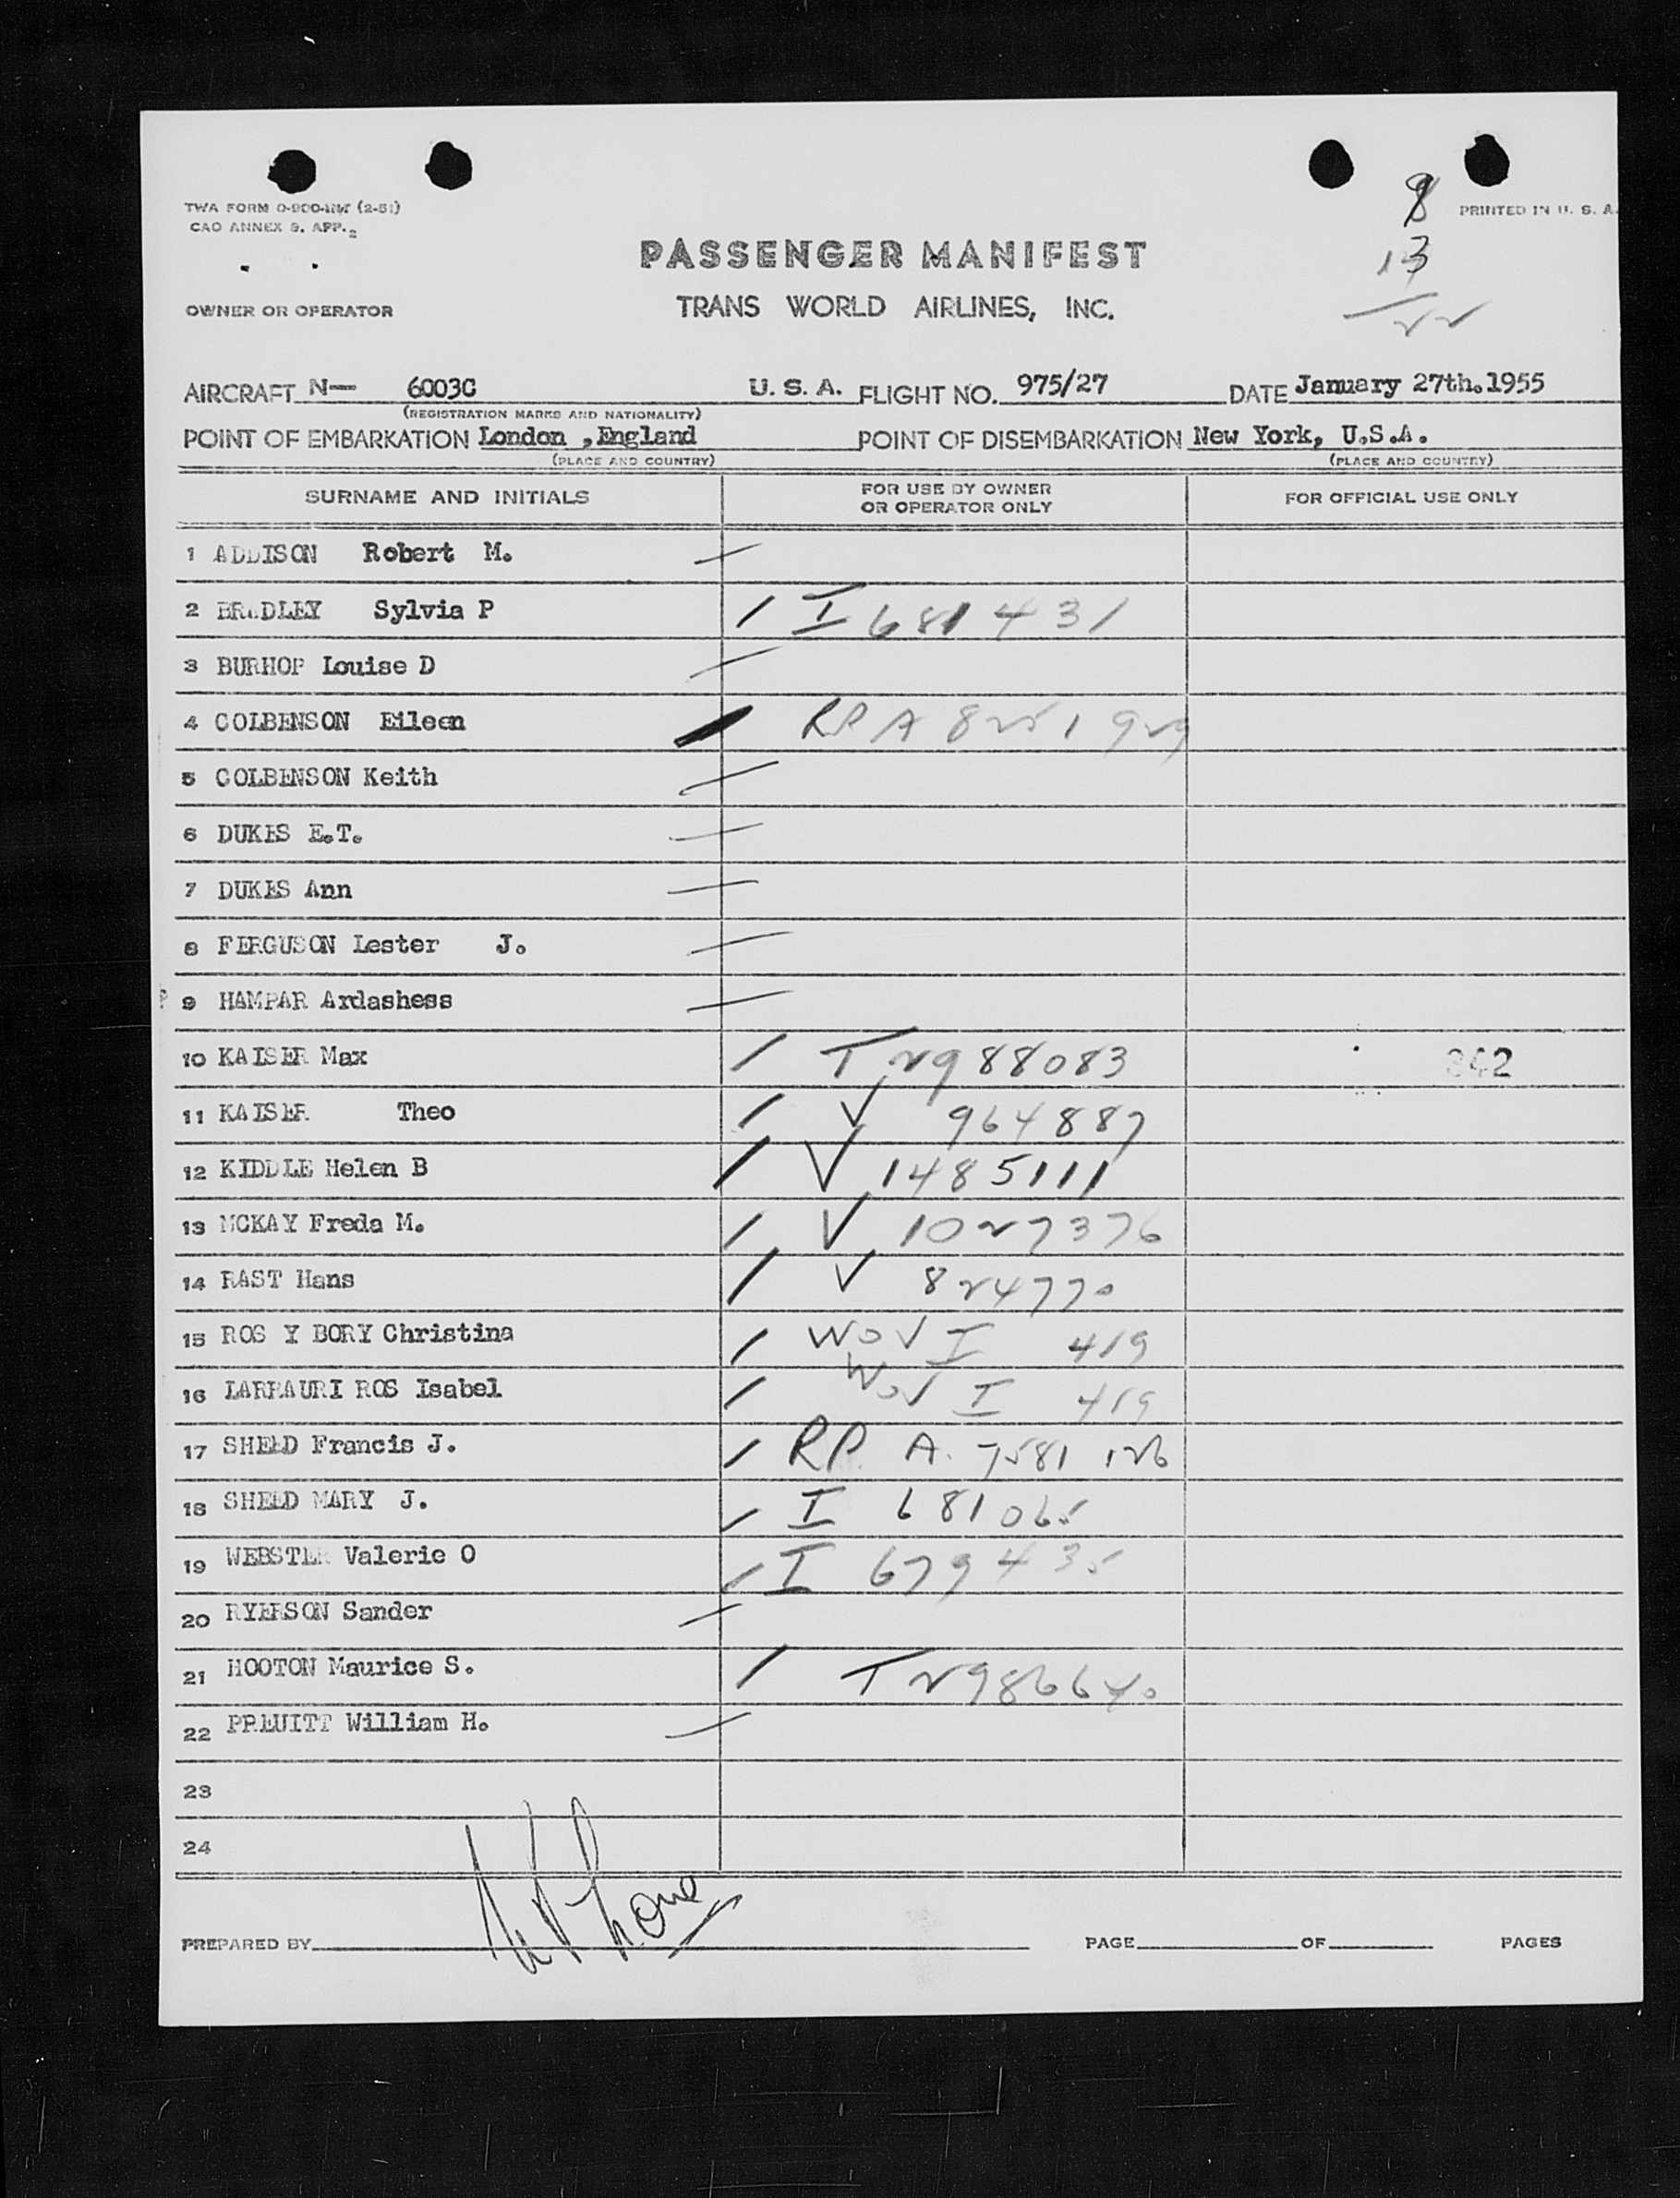 TWA FORM O-900-INT (2-51)
CAO ANNEX 9. APP. 2
PRINTED IN U. S. A.
13
22
PASSENGER MANIFEST
OWNER OR OPERATOR
TRANS WORLD AIRLINES, INC.
AIRCRAFT N— 6003C U. S. A. FLIGHT NO. 975/27 DATE January 27th.1955
(REGISTRATION MARKS AND NATIONALITY)
POINT OF EMBARKATION London ,England POINT OF DISEMBARKATION New York, U.S.A.
(PLACE AND COUNTRY) (PLACE AND COUNTRY)
SURNAME AND INITIALS FOR USE BY OWNER OR OPERATOR ONLY FOR OFFICIAL USE ONLY
1 ADDISON Robert M.
2 BRADLEY Sylvia P I 681431
3 BURHOP Louise D
4 COLBENSON Eileen RP A 8251929
5 COLBENSON Keith
6 DUKES E.T.
7 DUKES Ann
8 FERGUSON Lester J.
9 HAMPAR Ardashess
10 KAISER Max T 2988083 342
11 KAISER Theo V 964887
12 KIDDLE Helen B V 1485111
13 MCKAY Freda M. V 1027376
14 RAST Hans V 824770
15 ROS Y BORY Christina WOV I 419
16 LARRAURI ROS Isabel WOV I 419
17 SHEED Francis J. RP A. 7581 126
18 SHEED MARY J. I 681065
19 WEBSTER Valerie O I 679435
20 RYERSON Sander
21 HOOTON Maurice S. T 2986640
22 PREUITT William H.
23
24
PREPARED BY
PAGE OF PAGES